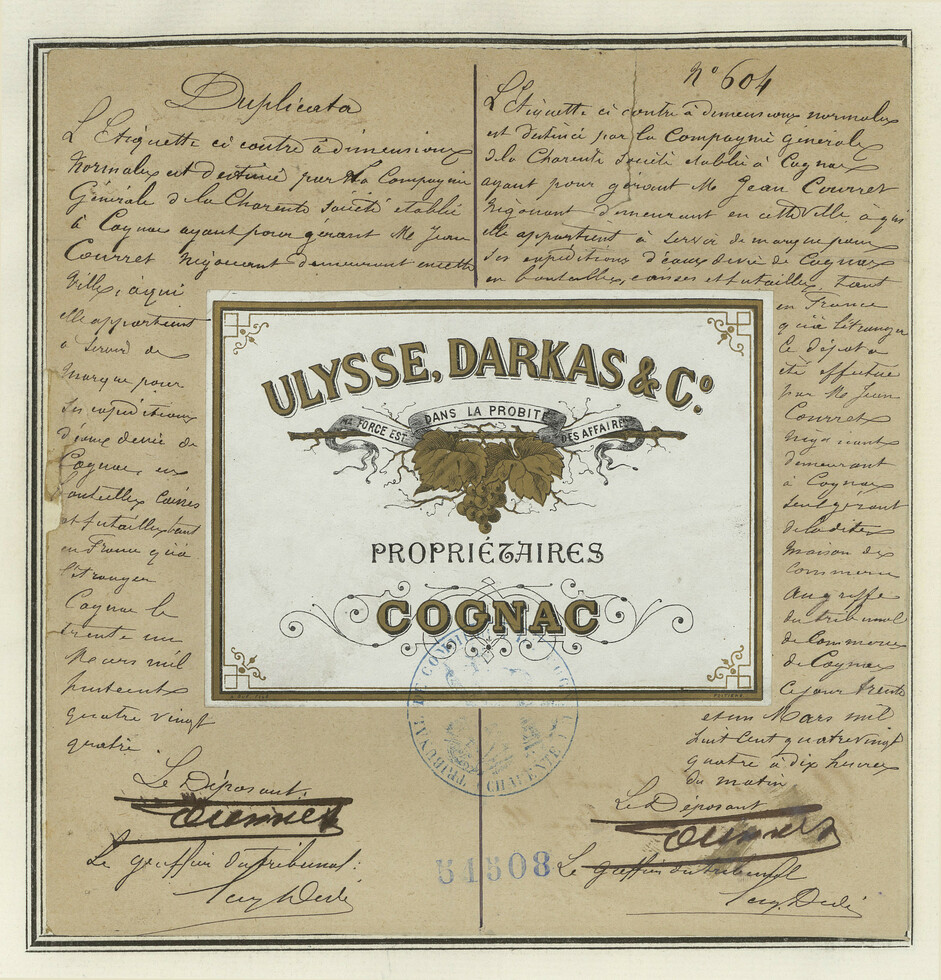 Duplicata
L'Etiquette ci contre à dimensions
normales est destinée par la Compagnie
Générale de la Charente société établie
à Cognac ayant pour gérant Mr Jean
Courret Négociant demeurant en cette
Ville, à qui
elle appartient
à servir de
marque pour
ses expéditions
d'eaux de vie de
Cognac, en
bouteilles caisses
et futailles tant
en France qu'à
l'étranger
Cognac le
trente un
Mars mil
huit cent
quatre vingt
quatre.
Le Déposant,
Le greffier du tribunal:
N° 604
L'Etiquette ci contre à dimensions normales
est destinée par la Compagnie générale
de la Charente société établie à Cognac
ayant pour gérant Mr Jean Courret
Négociant demeurant en cette Ville, à qui
elle appartient à servir de marque pour
ses expéditions d'eaux de vie de Cognac
en bouteilles, caisses et futailles, tant
en France
qu'à l'étranger
Ce dépôt a
été effectué
par Mr Jean
Courret
négociant
demeurant
à Cognac
seul gérant
de la dite
maison de
commerce
au greffe
du tribunal
de Commerce
de Cognac
Ce jour trente
et un Mars mil
huit cent quatre vingt
quatre à dix heures
du matin
Le Déposant
Le greffier du tribunal
ULYSSE, DARKAS & Co.
LA FORCE EST DANS LA PROBITÉ DES AFFAIRES
PROPRIÉTAIRES
COGNAC
POITIERS
TRIBUNAL DE COMMERCE COGNAC CHARENTE
51508